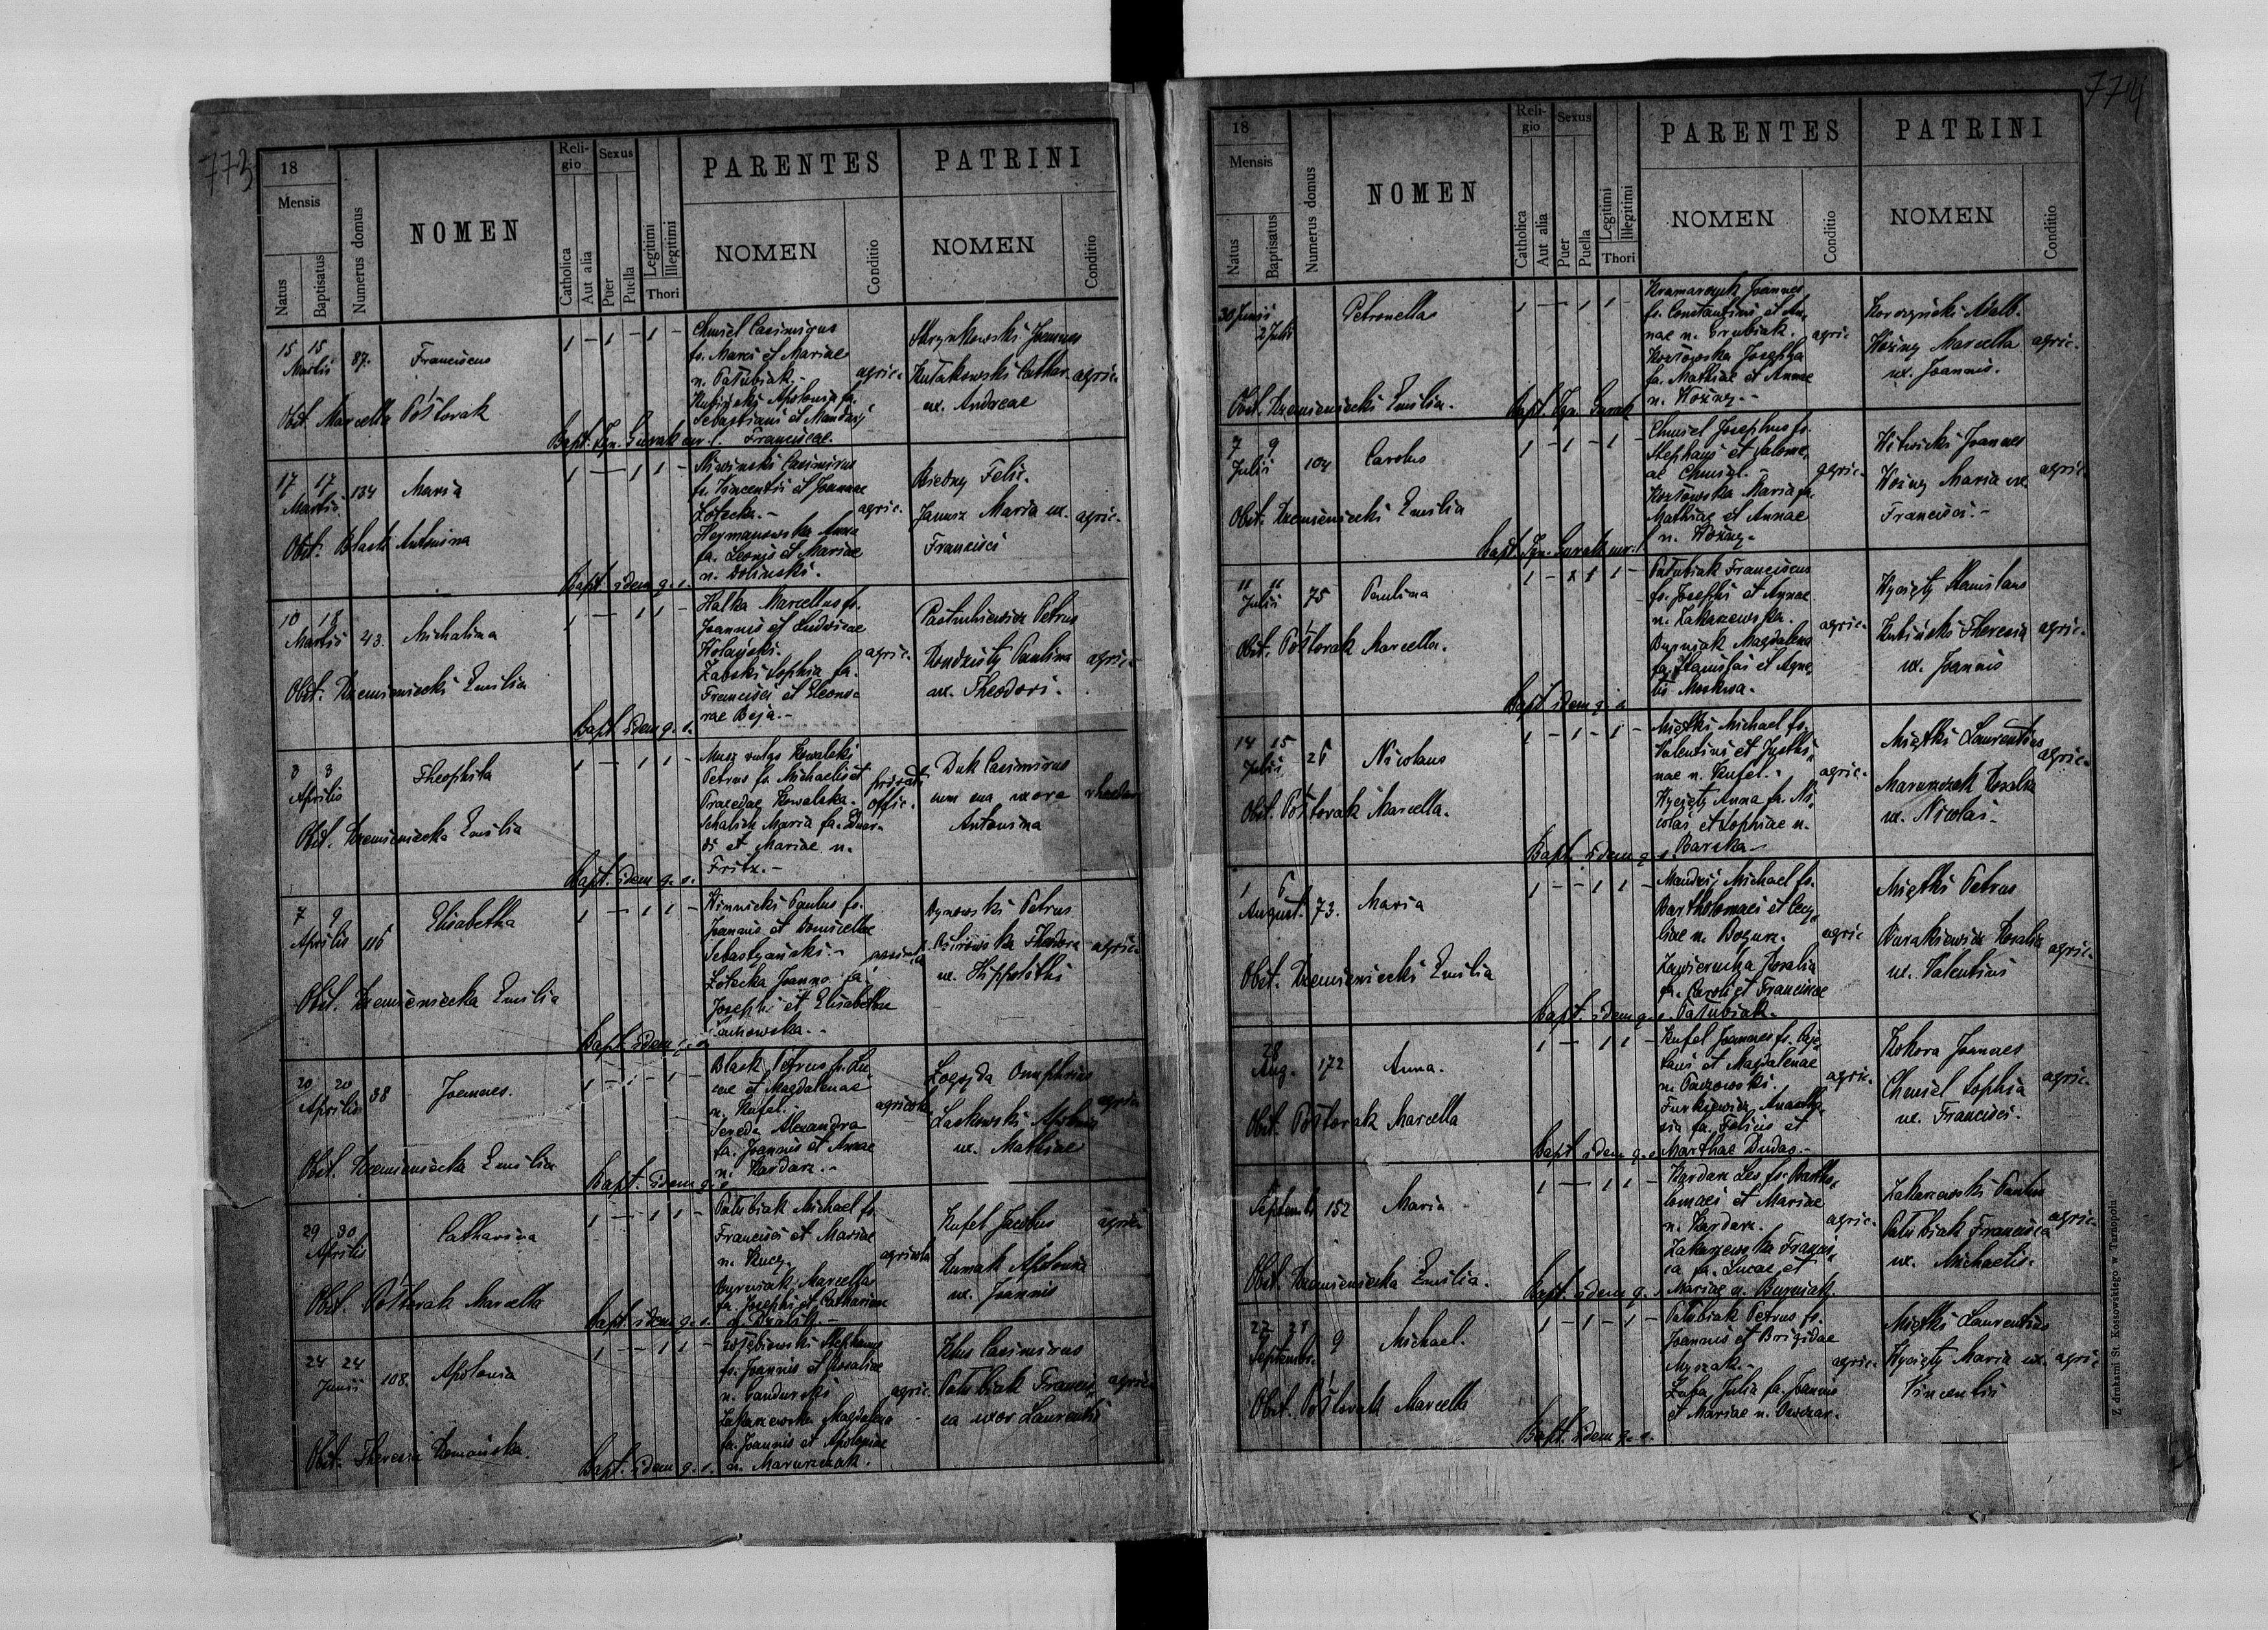 773
18
Mensis
Natus
Baptisatus
Numerus domus
NOMEN
Religio
Catholica
Aut alia
Sexus
Puer
Puella
Legitimi
Illegitimi
Thori
PARENTES
NOMEN
Conditio
PATRINI
NOMEN
Conditio
15 15
Martii
87.
Franciscus
Obst. Marcella Półtorak
1 — 1 — 1 —
Chmiel Casimirus
fs. Marci et Mariae
n. Patubiak.-
Kubiński Apolonia fa.
Sebastiani et Mandzij
Franciscae.
agric.
Bapt. Ign. Gurak
Skrynkowski Joannes
Kułakowski Cathar.
ux. Andreae
agric.
17 17
Martii
134
Maria
Obst. Blask Antonina
1 — 1 1 —
Niwinski Casimirus
fs. Vincentii et Joannae
Łotecka.-
Heymanowska Anna
fa. Leonis et Mariae
n. Dolinski.
agric.
Bapt. idem q. s.
Biedny Felic.
Janusz Maria ux.
Francisci
agric.
10 18
Martii
43.
Michalina
Obst. Krzemieniecki Emilia
1 — 1 1 —
Halka Marcellus fs.
Joannis et Ludvicae
Zabski Sophia fa.
Francisci et Eleono-
rae Beja.-
agric.
Bapt. idem q. s.
Pastuchiewicz Petrus
Kondzisty Paulina
ux. Theodori.
agric.
3 3
Aprilis
Theophila
Obst. Krzemieniecka Emilia
1 — 1 1 —
Musz vulgo Kowalski
Petrus fs. Michaelis et
Praxedae Kowalska.
Schalich Maria fa. Eduar-
di et Mariae n.
Fritz.-
privat.
offic.
Bapt. idem q. s.
Duk Casimirus
cum sua uxore
Antonina
7 9
Aprilis
116
Elisabetha
Obst. Krzemieniecka Emilia
1 — 1 1 —
Winnicki Paulus fs.
Joannis et Domicellae
Sebastyański.-
Łotecka Joanna fa.
Josephi et Elisabethae
Bapt. idem q. s.
Dynowski Petrus
Ostrowska Theodora
ux. Hippolithi
agric.
20 20
Aprilis
38
Joannes.
Obst. Krzemieniecka Emilia
1 — 1 — 1 —
Blask Petrus fs. Lu-
cae et Magdalenae
n. Kufel.-
Sereda Alexandra
fa. Joannis et Annae
n. Kardasz.-
agricola
Bapt. idem q. s.
Łogojda Onuphrius
Laskowski Apolonia
ux. Mathiae
agric.
29 30
Aprilis
Catharina
Obst. Półtorak Marcella
1 — 1 1 —
Patubiak Michael fs.
Francisci et Mariae
n. Kucy.
Burniak Marcella
fa. Josephi et Catharinae
agricola
Bapt. idem q. s.
Kufel Jacobus
Kumak Apolonia
ux. Joannis
agric.
24 24
Junii
108.
Apolonia
Obst. Theresia Romańska.
1 — 1 1 —
Gołębiowski Stephanus
fs. Joannis et Rosaliae
n. Gandurski
Zakarzewska Magdalena
fa. Joannis et Apoloniae
n. Marurczak.
agric.
Bapt. idem q. s.
Klus Casimirus
Patubiak Francis-
ca uxor Laurentii
agric.
774
18
Mensis
Natus
Baptisatus
Numerus domus
NOMEN
Religio
Catholica
Aut alia
Sexus
Puer
Puella
Legitimi
Illegitimi
Thori
PARENTES
NOMEN
Conditio
PATRINI
NOMEN
Conditio
30 Junii
2 Julii
Petronella
Obst. Krzemieniecki Emilia.
1 — 1 1 —
Kramarczuk Joannes
fs. Constantini et An-
nae n. Grubiak.
Kozłowska Josepha
fa. Mathiae et Annae
n. Woźny.-
agric.
Bapt. Ign. Gurak
Korczyński Adalb.
Woźny Marcella
ux. Joannis.
agric.
7 9
Julii
104
Carolus
Obst. Krzemieniecki Emilia
1 — 1 — 1 —
Chmiel Josephus fs.
Stephani et Salome-
ae Chmiel.-
Kozłowska Maria fa.
Mathiae et Annae
n. Woźny.
agric.
Bapt. Ign. Gurak
Witwicki Joannes
Woźny Maria ux.
Francisci.-
agric.
11 11
Julii
75
Paulina
Obst. Półtorak Marcella.
1 — 1 1 —
Patubiak Franciscus
fs. Josephi et Annae
n. Zakarzewska.
Burniak Magdalena
fa. Stanislai et Agne-
tis Moskwa.
agric.
Bapt. idem q. s.
Wycięty Stanislaus
Kubiński Theresia
ux. Joannis
agric.
14 15
Julii
26
Nicolaus
Obst. Półtorak Marcella.
1 — 1 — 1 —
Miętki Michael fs.
Valentini et Justi-
nae n. Kufel.
Wycięty Anna fa. Ni-
colai et Sophiae n.
Barska.-
agric.
Bapt. idem q. s.
Miętki Laurentius
Marurczak Rosalia
ux. Nicolai.-
agric.
1 6
August.
73.
Maria
Obst. Krzemieniecki Emilia
1 — — 1 1 —
Mandzij Michael fs.
Bartholomaei et Cecy-
liae n. Bogusz.
Zawierucha Rosalia
fa. Caroli et Franciscae
Patubiak.
agric.
Bapt. idem q. s.
Miętki Petrus
Burakiewicz Rosalia
ux. Valentini
agric.
28
Aug.
172
Anna.
Obst. Półtorak Marcella
1 — 1 1 —
Kufel Joannes fs. Caje-
tani et Magdalenae
Furkiewicz Anasta-
sia fa. Felicis et
Marthae Dudas.-
agric.
Bapt. idem q. s.
Kokora Joannes
Chmiel Sophia
ux. Francisci.
agric.
Septemb.
152
Maria
Obst. Krzemieniecka Emilia.
1 — 1 1 —
Kardasz Leo fs. Bartho-
lomaei et Mariae
n. Kardasz.
Zakarzewska Francis-
ca fa. Lucae et
Mariae n. Burniak.
agric.
Bapt. idem q. s.
Zakarzewski Paulus
Patubiak Francisca
ux. Michaelis.
agric.
22 28
Septembr.
9
Michael.
Obst. Półtorak Marcella
1 — 1 — 1 —
Patubiak Petrus fs.
Joannis et Brigidae
Myszak.-
Żaba Julia fa. Joannis
et Mariae n. Owczar.
agric.
Bapt. idem q. s.
Miętki Laurentius
Wycięty Maria ux.
Vincentii
agric.
Z drukarni St. Kossowskiego w Tarnopolu